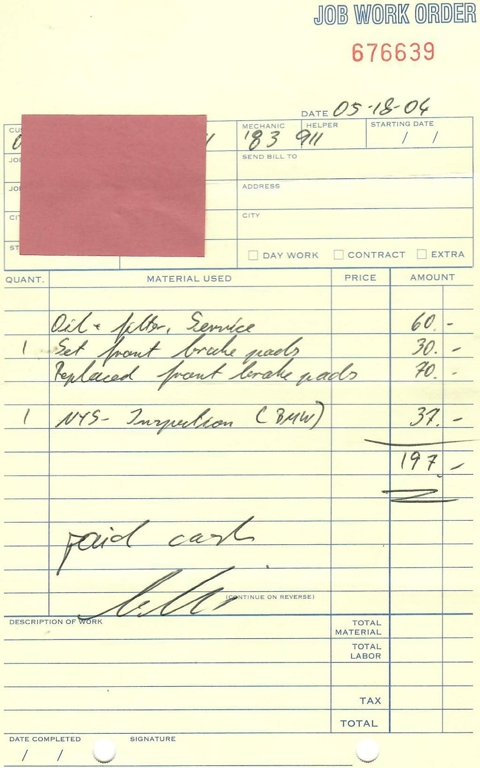 JOB WORK ORDER
676639
DATE 05-18-04
MECHANIC HELPER STARTING DATE
'83 911 / /
SEND BILL TO
ADDRESS
CITY
DAY WORK CONTRACT EXTRA
QUANT. MATERIAL USED PRICE AMOUNT
Oil + filter, Service 60.-
1 Set front brake pads 30.-
Replaced front brake pads 70.-
1 NYS- Inspection (BMW) 37.-
197.-
paid cash
(CONTINUE ON REVERSE)
DESCRIPTION OF WORK
TOTAL MATERIAL
TOTAL LABOR
TAX
TOTAL
DATE COMPLETED SIGNATURE
/ /